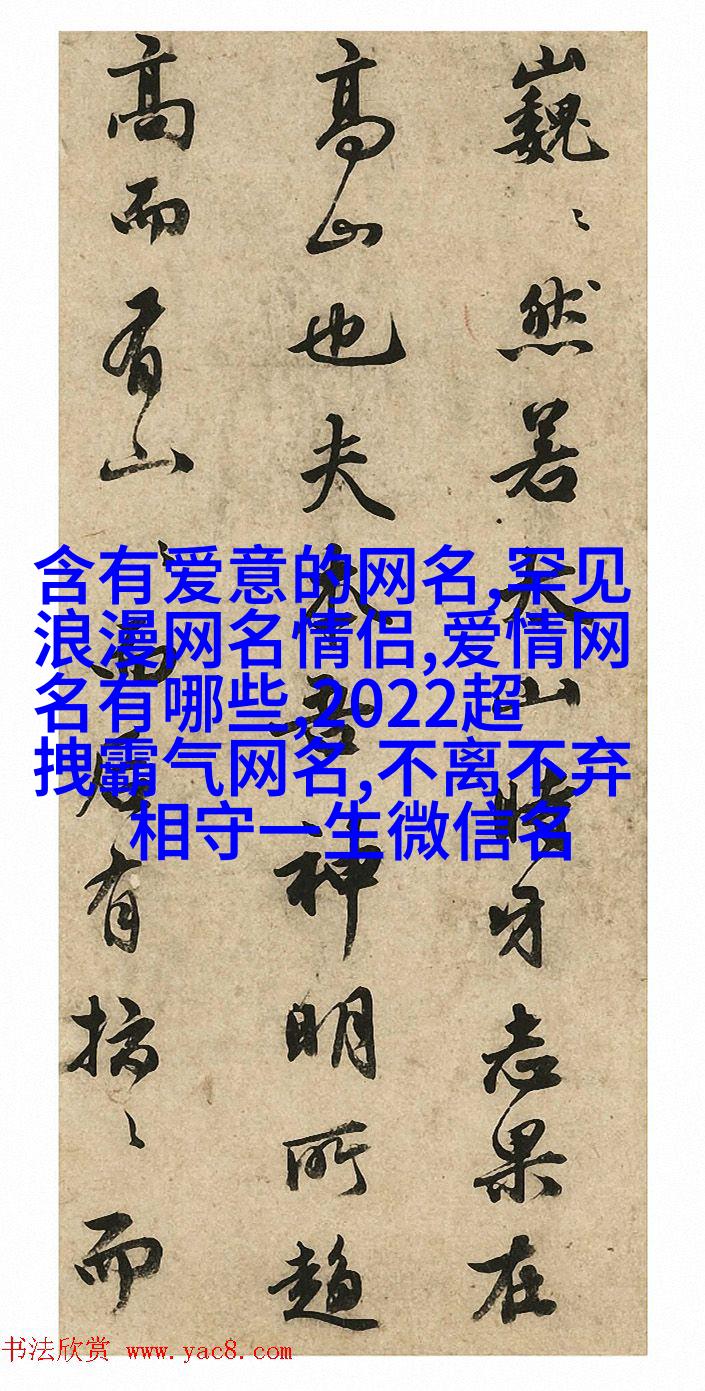 巍〻然若山牙志果在
高山也夫吾神明所趨
高而有山而居有而
含有爱意的网名,罕见
浪漫网名情侣,爱情网
名有哪些,2022超
拽霸气网名,不离不弃
相守一生微信名
书法欣赏 www.yac8.com